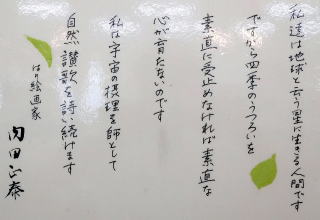 私達は地球と云う星に生きる人間です
ですから四季のうつろいを
素直に受止めなければ素直な
心が育たないのです
私は宇宙の摂理を師として
自然讃歌を詩い続けます
はり絵画家
内田正泰